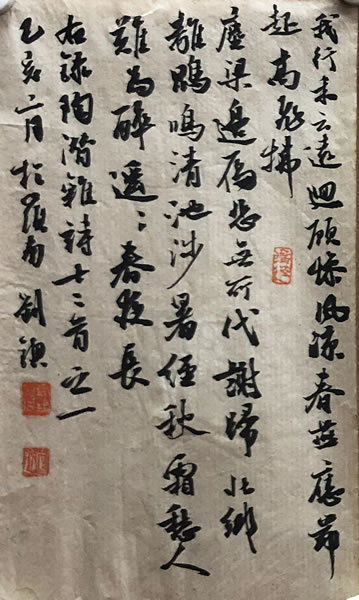 我行未云遠迴顧慘風涼春燕應節
起高飛拂
塵梁邊雁悲無所代謝歸北鄉
離鵾鳴清池涉暑經秋霜愁人
難為辭遙〻春夜長
右錄陶潛雜詩十二首之一
乙亥二月於羅南